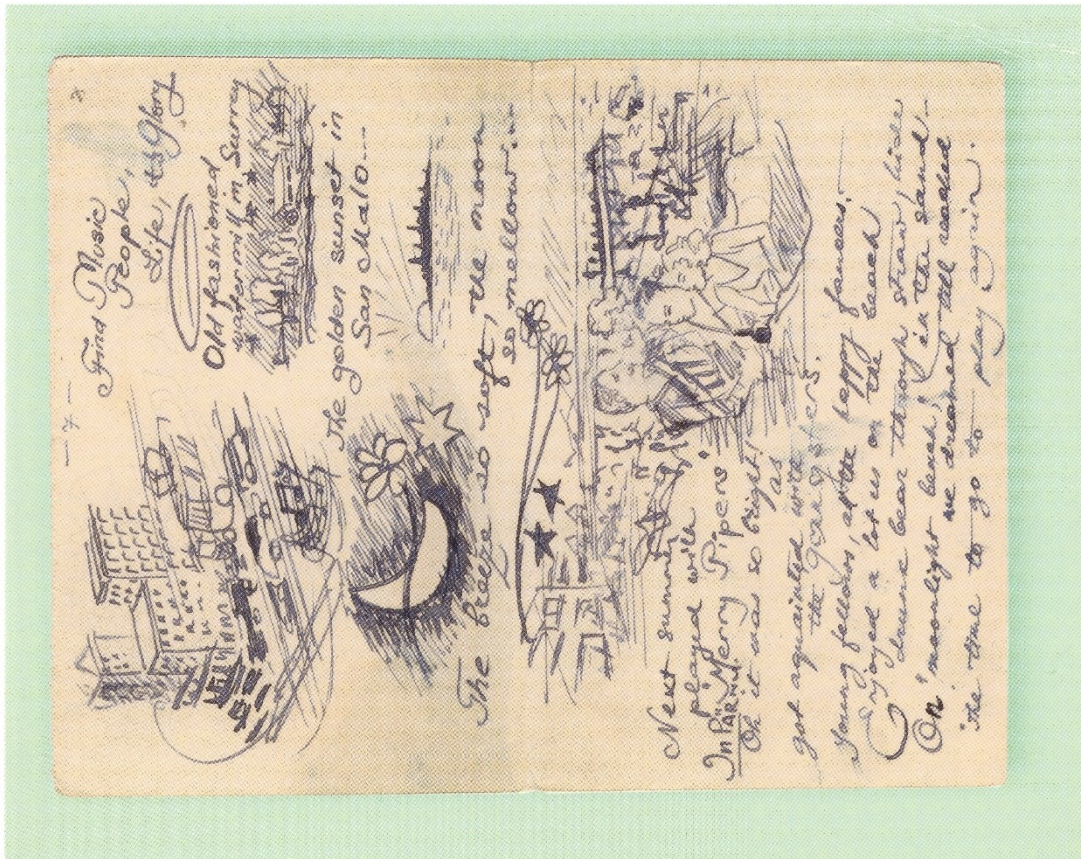 - 7 -
Find Music
People,
Life, its Glory
Old fashioned
watermill in Surrey
The golden sunset in
San Malo...
The breeze so soft, the moon
so mellow...
Next summer
played with
"Merry Pipers"
In PÄRNU.
Oh it was so bright!
got aquainted with as
the youngsters.
Young fellows, after peppy
Enjoyed a lot us on the beach
drunk bear through straw, hide
On moonlight beach, in the sand
we dreamed till
the time to go to play again.